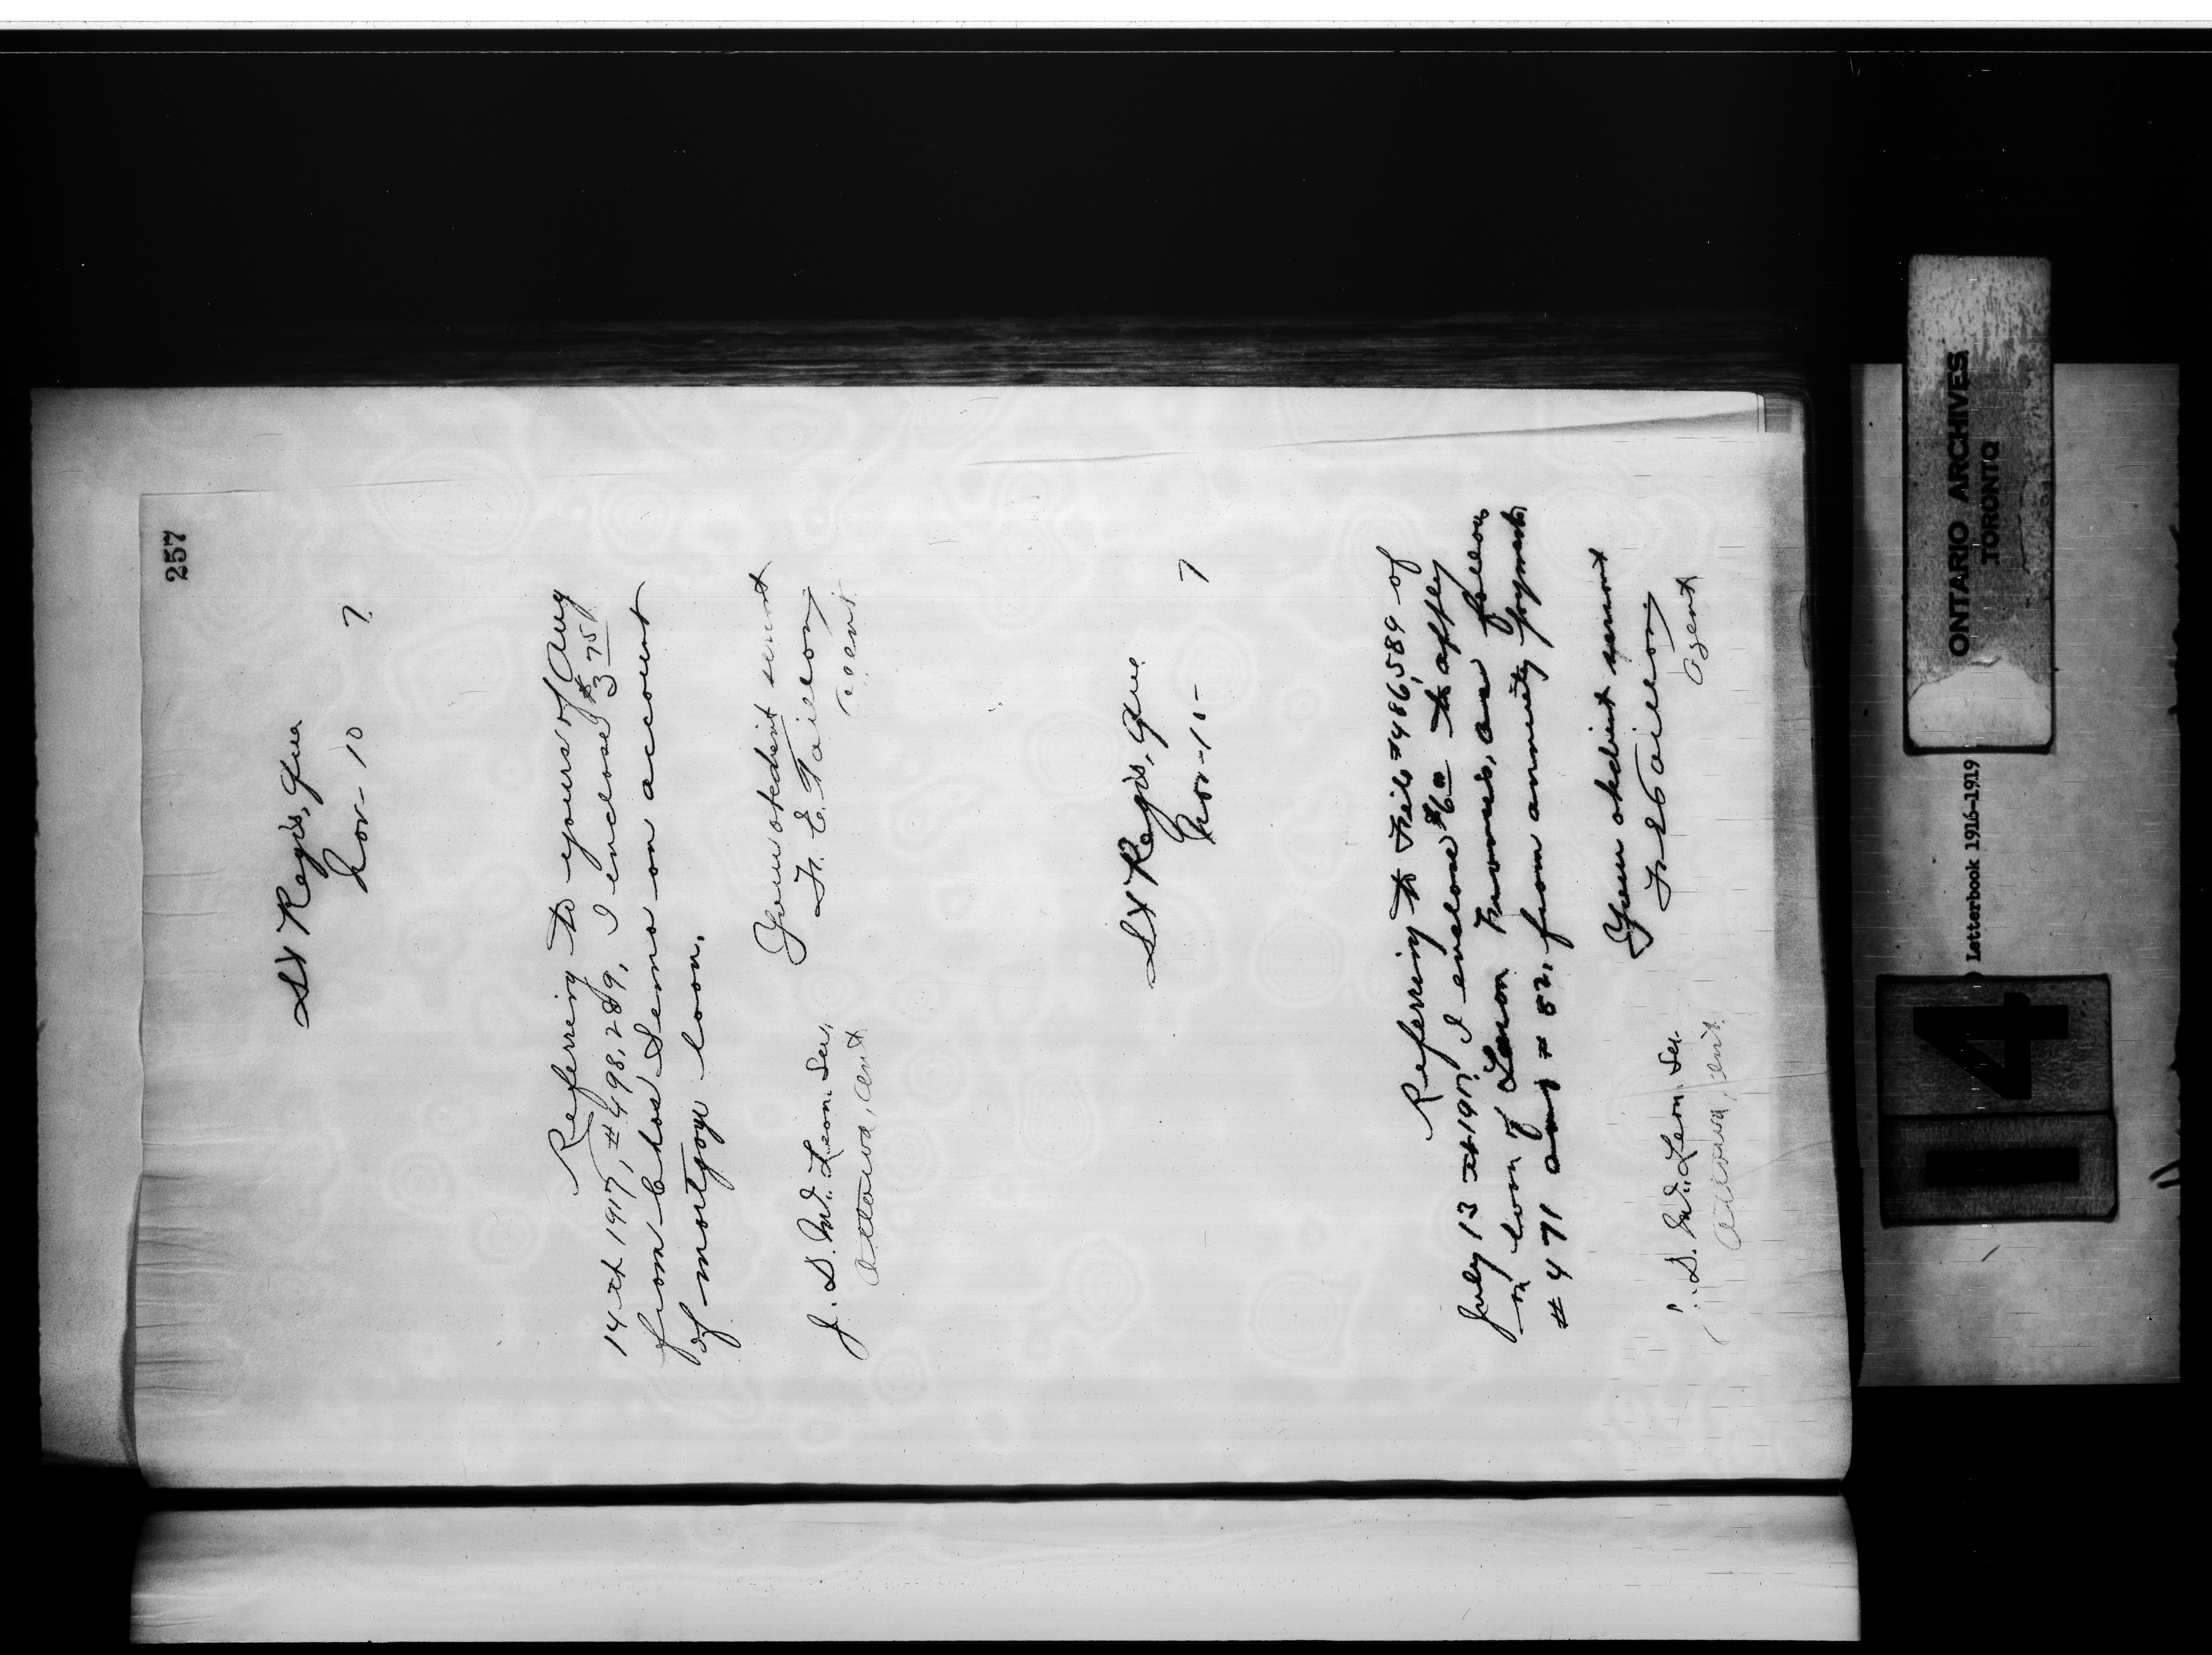 257
St Regis, Que
Nov- 10 7.
Referring to yours of Aug
14th 1917, # 498,289, I enclose $3 75/
from Chas Leno on account
of mortgage loan.
Your obedient servant
F. E. Taillon
agent
J. D. McLean Sec.
Ottawa, Ont
St Regis, Que
Nov-10- 7
Referring to File #486,589 of
July 13th 1917, I enclose $6 00 to apply
on loan of as follows
#471 and #82, from annuity payments
Your obedient servant
F E Taillon
Agent
J. D. McLean Sec.
Ottawa, Ont.
ONTARIO ARCHIVES
TORONTO
Letterbook 1916-1919
14